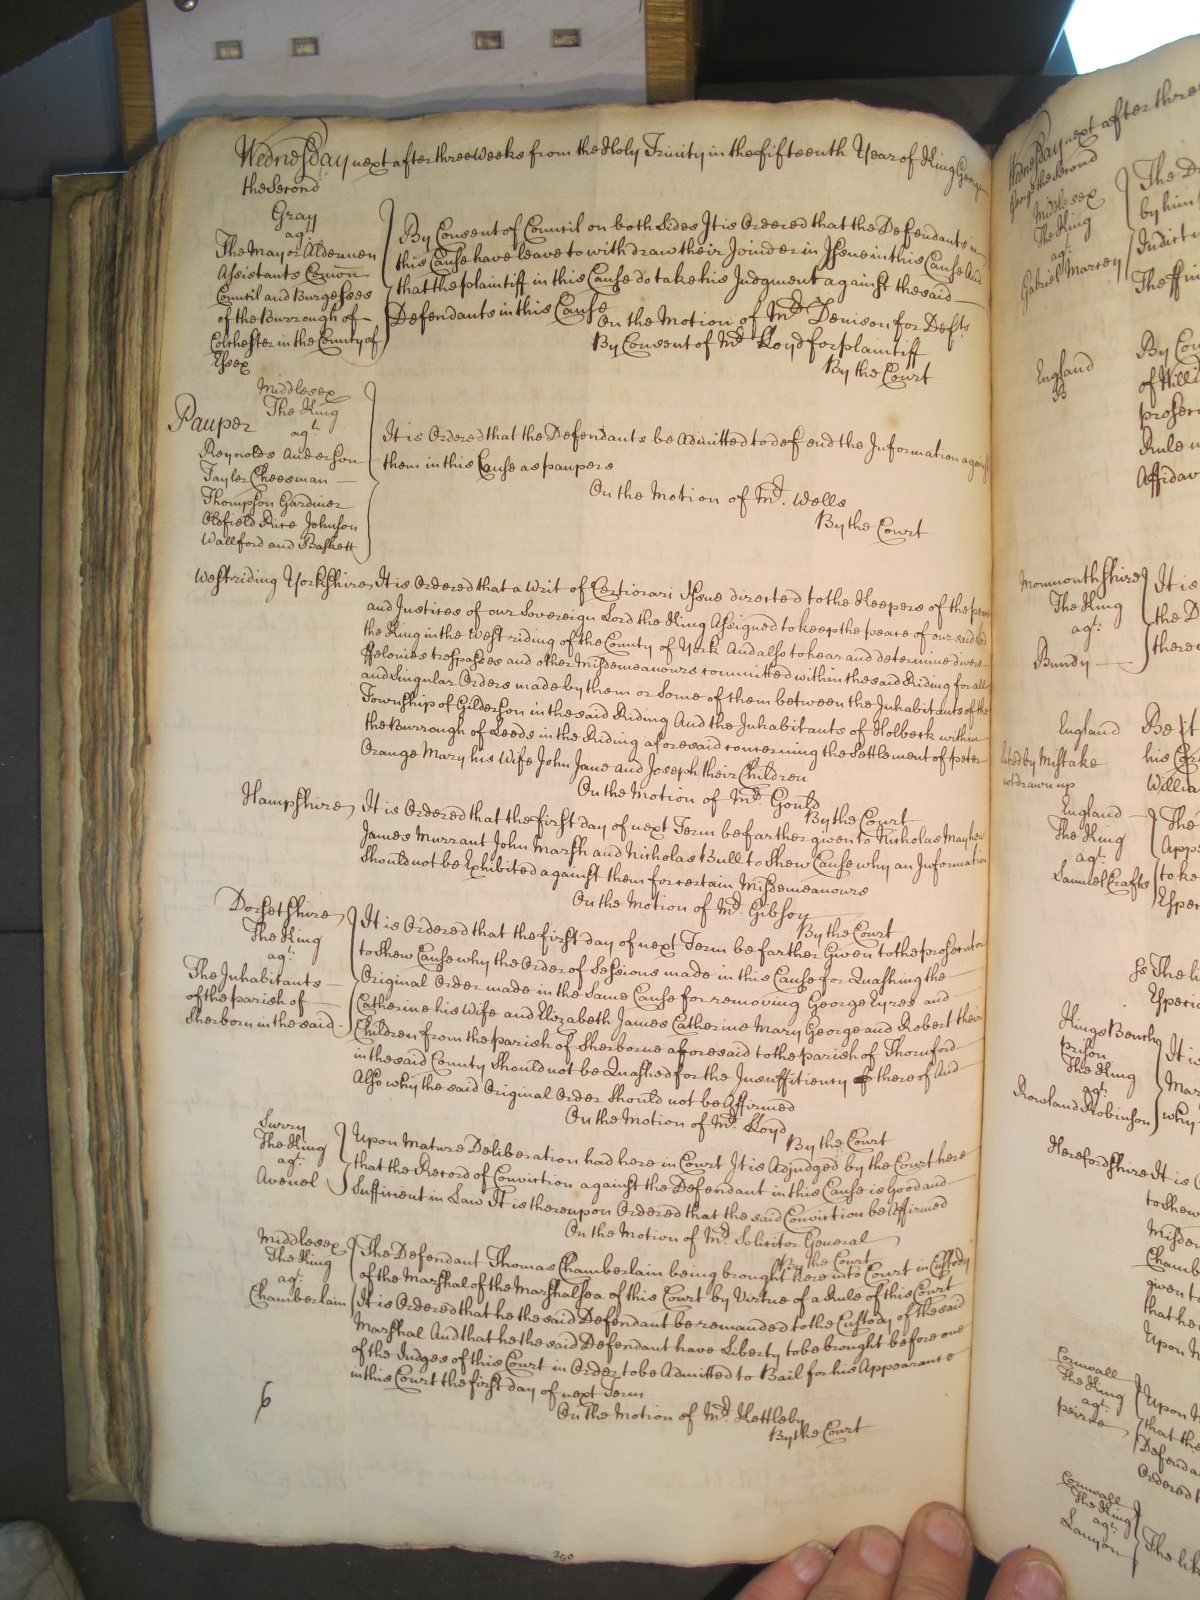 Wednesday next after three weeks from the Holy Trinity in the fifteenth Year of King George
the Second
Gray
agt
The Mayor Aldermen
Assistants Comon
Council and Burgesses
of the Burrough of
Colchester in the County of
Essex
By Consent of Council on both Sides It is Ordered that the Defendants in
this Cause have leave to withdraw their Joinder in Issue in this Cause And
that the plaintiff in this Cause do take his Judgment against the said
Defendants in this Cause
On the Motion of Mr Denison for Defts
By Consent of Mr Lloyd for plaintiff
By the Court
Middlesex
Pauper The King
agt
Reynolds Anderson
Tayler Cheesman
Thompson Gardiner
Olefield Rice Johnson
Wallford and Baskett
It is Ordered that the Defendants be Admitted to defend the Information against
them in this Cause as paupers
On the Motion of Mr. Wells
By the Court
Westriding Yorkshire, It is Ordered that a Writ of Certiorari Issue directed to the Keepers of the peace
and Justices of our Sovereign Lord the King Assigned to keep the peace of our said Lord
the King in the West riding of the County of York And also to hear and determine divers
ffelonies trespasses and other Misdemeanours committed within the said Riding for all
and Singular Orders made by them or Some of them between the Inhabitants of the
Township of Gilderson in the said Riding And the Inhabitants of Holbeck within
the Burrough of Leeds in the Riding aforesaid concerning the Settlement of peter
Orange Mary his Wife John Jane and Joseph their Children
On the Motion of Mr Gould
By the Court
Hampshire, It is Ordered that the first day of next Term be farther given to Nicholas Mayhew
James Murrant John Marsh and Nicholas Bull to Shew Cause why an Information
Should not be Exhibited against them for certain Misdemeanours
On the Motion of Mr. Gibson
By the Court
Dorsetshire,
The King
agt.
The Inhabitants
of the parish of
Sherborn in the said
It is Ordered that the first day of next Term be farther Given to the prosecutor
to Shew Cause why the Order of Sessions made in this Cause for Quashing the
Original Order made in the Same Cause for removing George Eyres and
Catherine his Wife and Elizabeth James Catherine Mary George and Robert their
Children from the parish of Sherborne aforesaid to the parish of Thornford
in the said County Should not be Quashed for the Insufficiency thereof And
Also why the said Original Order Should not be Affirmed
On the Motion of Mr. Lloyd
By the Court
Surry
The King
agt.
Avenel
Upon Mature Deliberation had here in Court It is Adjudged by the Court here
that the Record of Conviction against the Defendant in this Cause is Good and
Sufficient in Law It is thereupon Ordered that the said Conviction be Affirmed
On the Motion of Mr. Solicitor General
By the Court
Middlesex
The King
agt.
Chamberlain
The Defendant Thomas Chamberlain being brought here into Court in Custody
of the Marshal of the Marshalsea of this Court by Virtue of a Rule of this Court
It is Ordered that he the said Defendant be remanded to the Custody of the said
Marshal And that he the said Defendant have Liberty to be brought before one
of the Judges of this Court in Order to be Admitted to Bail for his Appearance
in this Court the first day of next Term
On the Motion of Mr. Kettleby
By the Court
350
Wednesday next after three
George the Second
Middlesex
The King
agt.
Gabriel Marrey
The
by him
Indict
The
England
By Con
of Will
prosec
Rule
Affidav
Monmouthshire
The King
agt.
Bundy
It is
the D
there
England Be it
by Mistake his
not drawn up Willia
England
The King
agt.
Samuel Crafts
The
Appe
to ke
Espec
The li
Especi
Kings Bench
prison
The King
agt.
Rowland Robinson
It is
Mar
why
Herefordshire It is
to Shew
Misdem
Chamb
given to
that he
Upon
Cornwall
The King
agt.
peirce
Upon
that the
Defenda
Ordered
Cornwall
The King
agt.
Lanyon
The lik